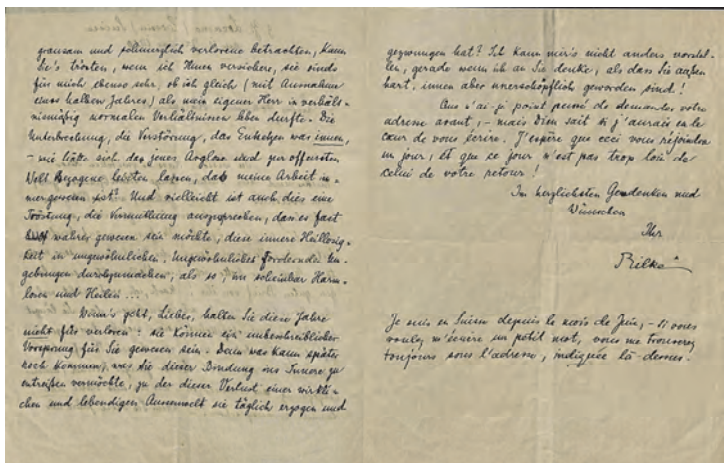 grausam und schmerzlich verlorene betrachten, kann
Sie's trösten, wenn ich Ihnen versichere, sie sinds
für mich ebenso sehr, ob ich gleich (mit Ausnahme
eines halben Jahres) als mein eigener Herr in verhält-
nismäßig normalen Verhältnissen leben durfte. Die
Unterbrechung, die Verstörung, das Entsetzen war innen,
– wie ließe sich das jenes Arglose und zur offensten
Welt Bezogene leisten lassen, das meiner Arbeit im-
mer gewesen ist? Und vielleicht ist auch dies eine
Tröstung, die Vermuthung auszusprechen, dass es fast
wahrer gewesen sein möchte, diese innere Heillosig-
keit in ungewöhnlichen, Ungewöhnliches fordernden Um-
gebungen durchzumachen, als so, im scheinbar Harm-
losen und Heilen ...
Wenn's geht, Lieber, halten Sie diese Jahre
nicht für verloren: sie können ein unbeschreiblicher
Vorsprung für Sie gewesen sein. Denn was kann später
noch kommen, was Sie dieser Bindung ins Innere zu
entreißen vermöchte, zu der dieser Verlust einer wirkli-
chen und lebendigen Aussenwelt sie täglich erzogen und
gezwungen hat? Ich kann mir's nicht anders vorstel-
len, gerade wenn ich an Sie denke, als dass Sie außen
hart, innen aber unerschöpflich geworden sind!
n'ai-je point pensé de demander votre
adresse avant, – mais Dieu sait si j'aurais eu le
cœur de vous écrire. J'espère que ceci vous rejoindra
un jour, et que ce jour n'est pas trop loin de
celui de votre retour!
In herzlichsten Gedenken und
Wünschen
Ihr
Rilke
Je suis en Suisse depuis le mois de Juin, – si vous
voulez m'écrire un petit mot, vous me trouverez
toujours sous l'adresse, indiquée là-dessus.